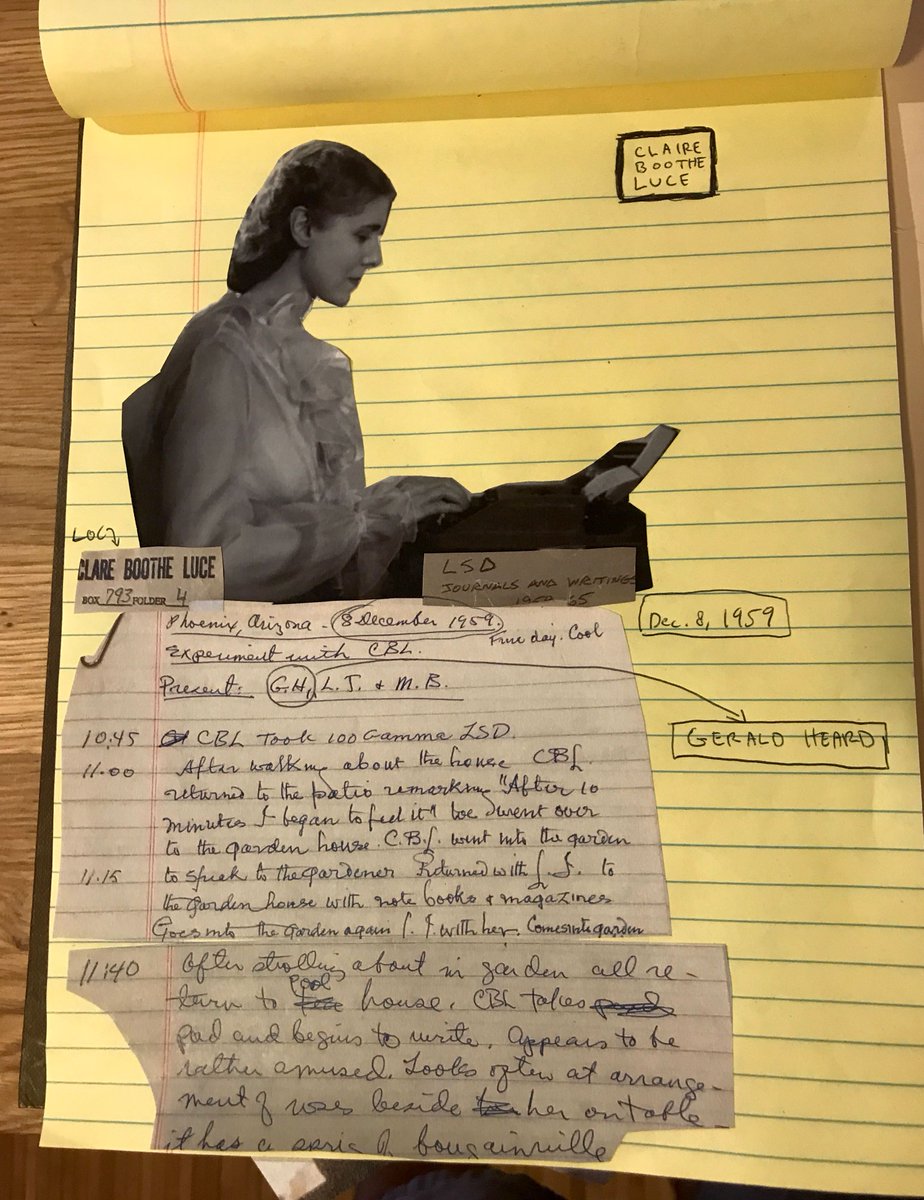 CLAIRE
BOOTHE
LUCE
LOC
CLARE BOOTHE LUCE
BOX 793 FOLDER 4
LSD
JOURNALS AND WRITINGS
1959 65
Phoenix, Arizona. 8 December 1959.
Fine day. Cool
Experiment with CBL.
Present: G.H, L.J. & M.B.
Dec. 8, 1959
GERALD HEARD
10:45 CBL Took 100 Gamma LSD.
11.00 After walking about the house CBL
returned to the patio remarking "After 10
minutes I began to feel it" we went over
to the garden house. C.B.L. went into the garden
11.15 to speak to the gardener Returned with to
the garden house with note books & magazines
Goes into the garden again with her. Comes into garden
11:40 After strolling about in garden all re-
turn to pool house. CBL takes
pad and begins to write. Appears to be
rather amused. Looks often at arrange-
ment of roses beside her on table
it has a sprig of bougainville